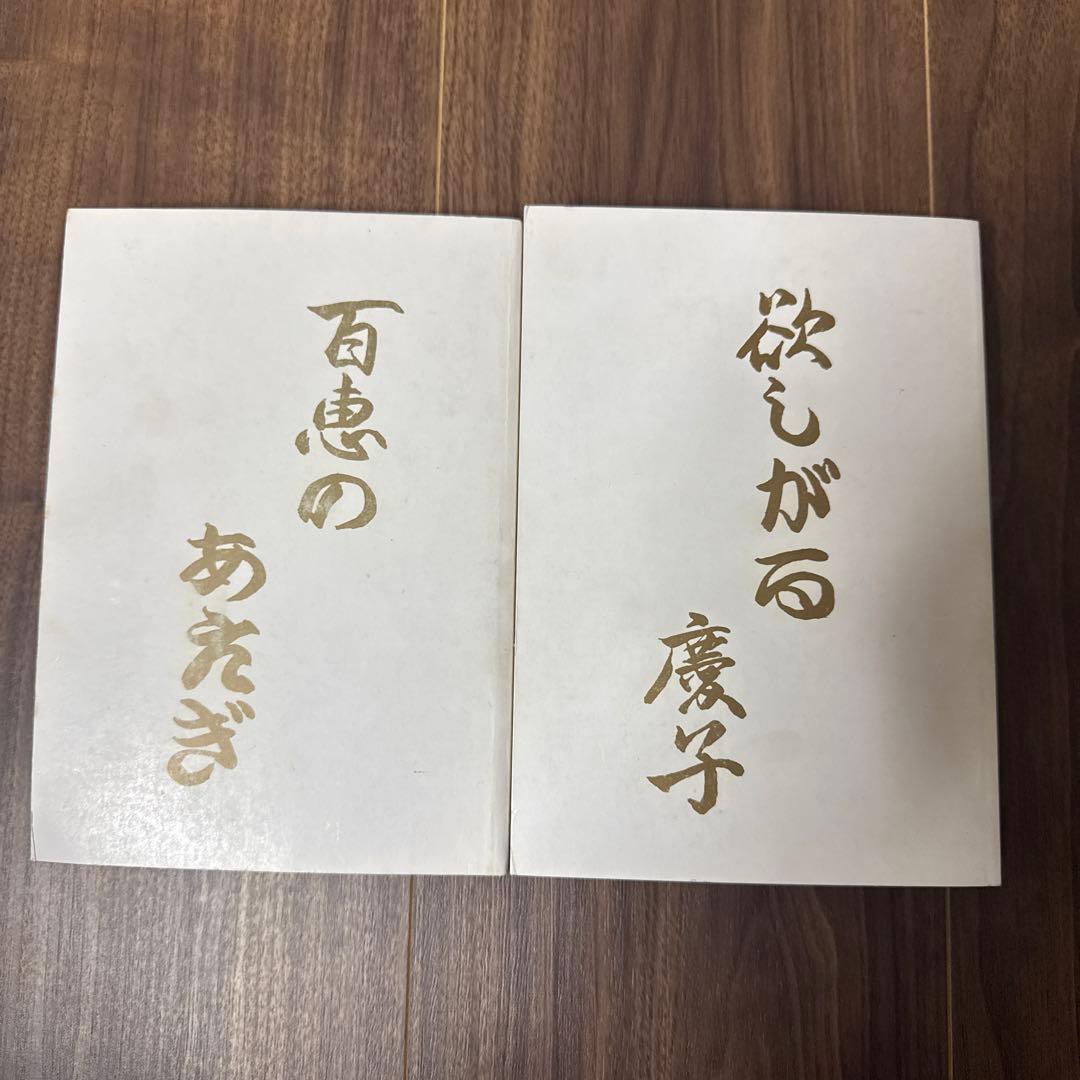 百恵の
あえぎ
欲しがる
慶子